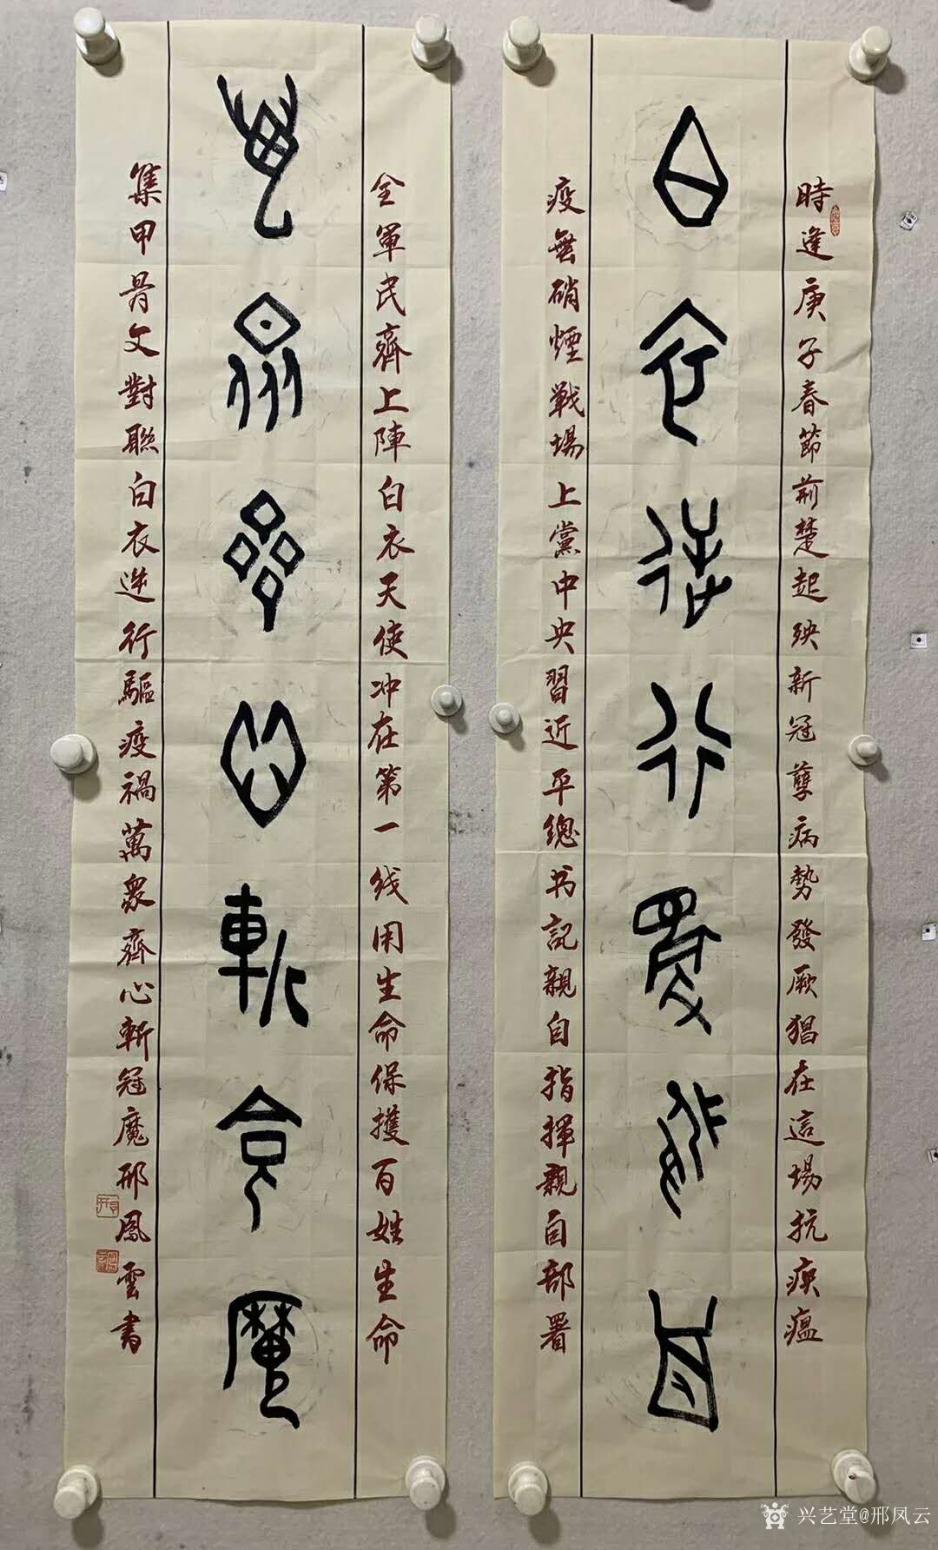 時逢庚子春節荊楚起殃新冠孽病勢發厥猖在這場抗瘟
白衣逆行驅疫禍
疫無硝煙戦場上黨中央習近平總书記親自指揮親自部署
全軍民齊上陣白衣天使冲在第一线用生命保擭百姓生命
萬衆齊心斬冠魔
集甲骨文對聯白衣逆行驅疫禍萬衆齊心斬冠魔邢鳳雲書
兴艺堂@邢凤云